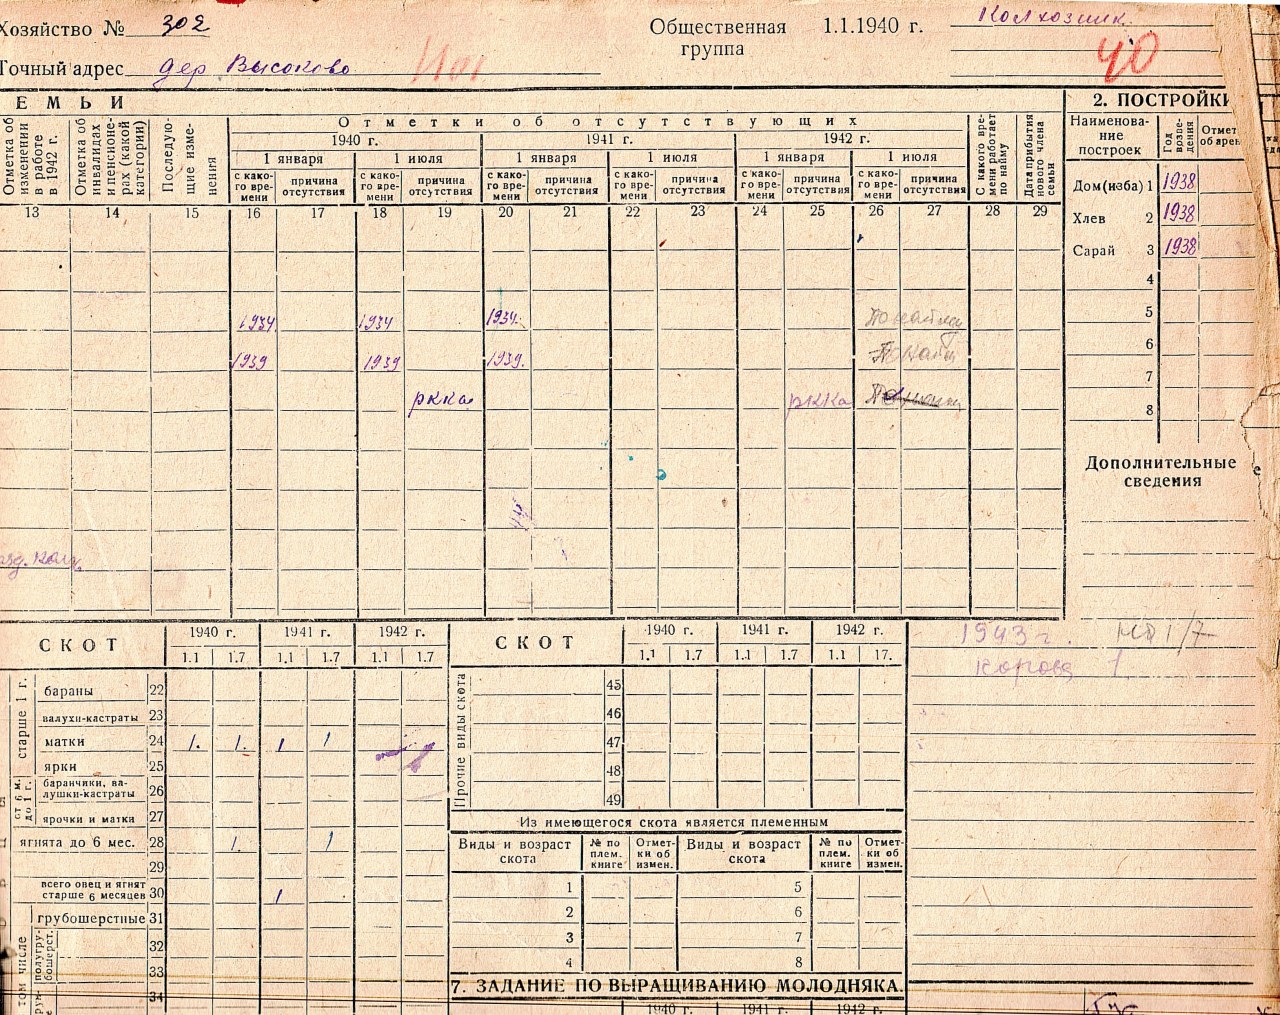 Хозяйство № 302
Общественная группа 1.1.1940 г. Колхозник
40
Точный адрес дер Высоково
ЕМЬИ
Отметка об изменении в работе в 1942 г.
Отметка об инвалидах и пенсионерах (какой категории)
Последующие изменения
Отметки об отсутствующих
1940 г. 1941 г. 1942 г.
1 января 1 июля 1 января 1 июля 1 января 1 июля
с какого времени причина отсутствия с какого времени причина отсутствия с какого времени причина отсутствия с какого времени причина отсутствия с какого времени причина отсутствия с какого времени причина отсутствия
С какого времени работает по найму
Дата прибытия нового члена семьи
13 14 15 16 17 18 19 20 21 22 23 24 25 26 27 28 29
1934 1934 1934.
1939 1939 1939.
ркка ркка
2. ПОСТРОЙКИ
Наименование построек
Год возведения
Отмет об арен
Дом (изба) 1 1938
Хлев 2 1938
Сарай 3 1938
4
5
6
7
8
Дополнительные сведения
СКОТ
1940 г. 1941 г. 1942 г.
1.1 1.7 1.1 1.7 1.1 1.7
старше 1 г.
бараны 22
валухи-кастраты 23
матки 24 1. 1. 1 1
ярки 25
от 6 м. до 1 г.
баранчики, валушки-кастраты 26
ярочки и матки 27
ягнята до 6 мес. 28 1. 1
29
всего овец и ягнят старше 6 месяцев 30 1
том числе
грубошерстные 31
полугрубошерст.
32
33
34
СКОТ
1940 г. 1941 г. 1942 г.
1.1 1.7 1.1 1.7 1.1 17.
Прочие виды скота
45
46
47
48
49
Из имеющегося скота является племенным
Виды и возраст скота № по плем. книге Отметки об измен. Виды и возраст скота № по плем. книге Отметки об измен.
1 5
2 6
3 7
4 8
7. ЗАДАНИЕ ПО ВЫРАЩИВАНИЮ МОЛОДНЯКА.
1940 г. 1941 г. 1942 г.
1943 г. 1/7
корова 1